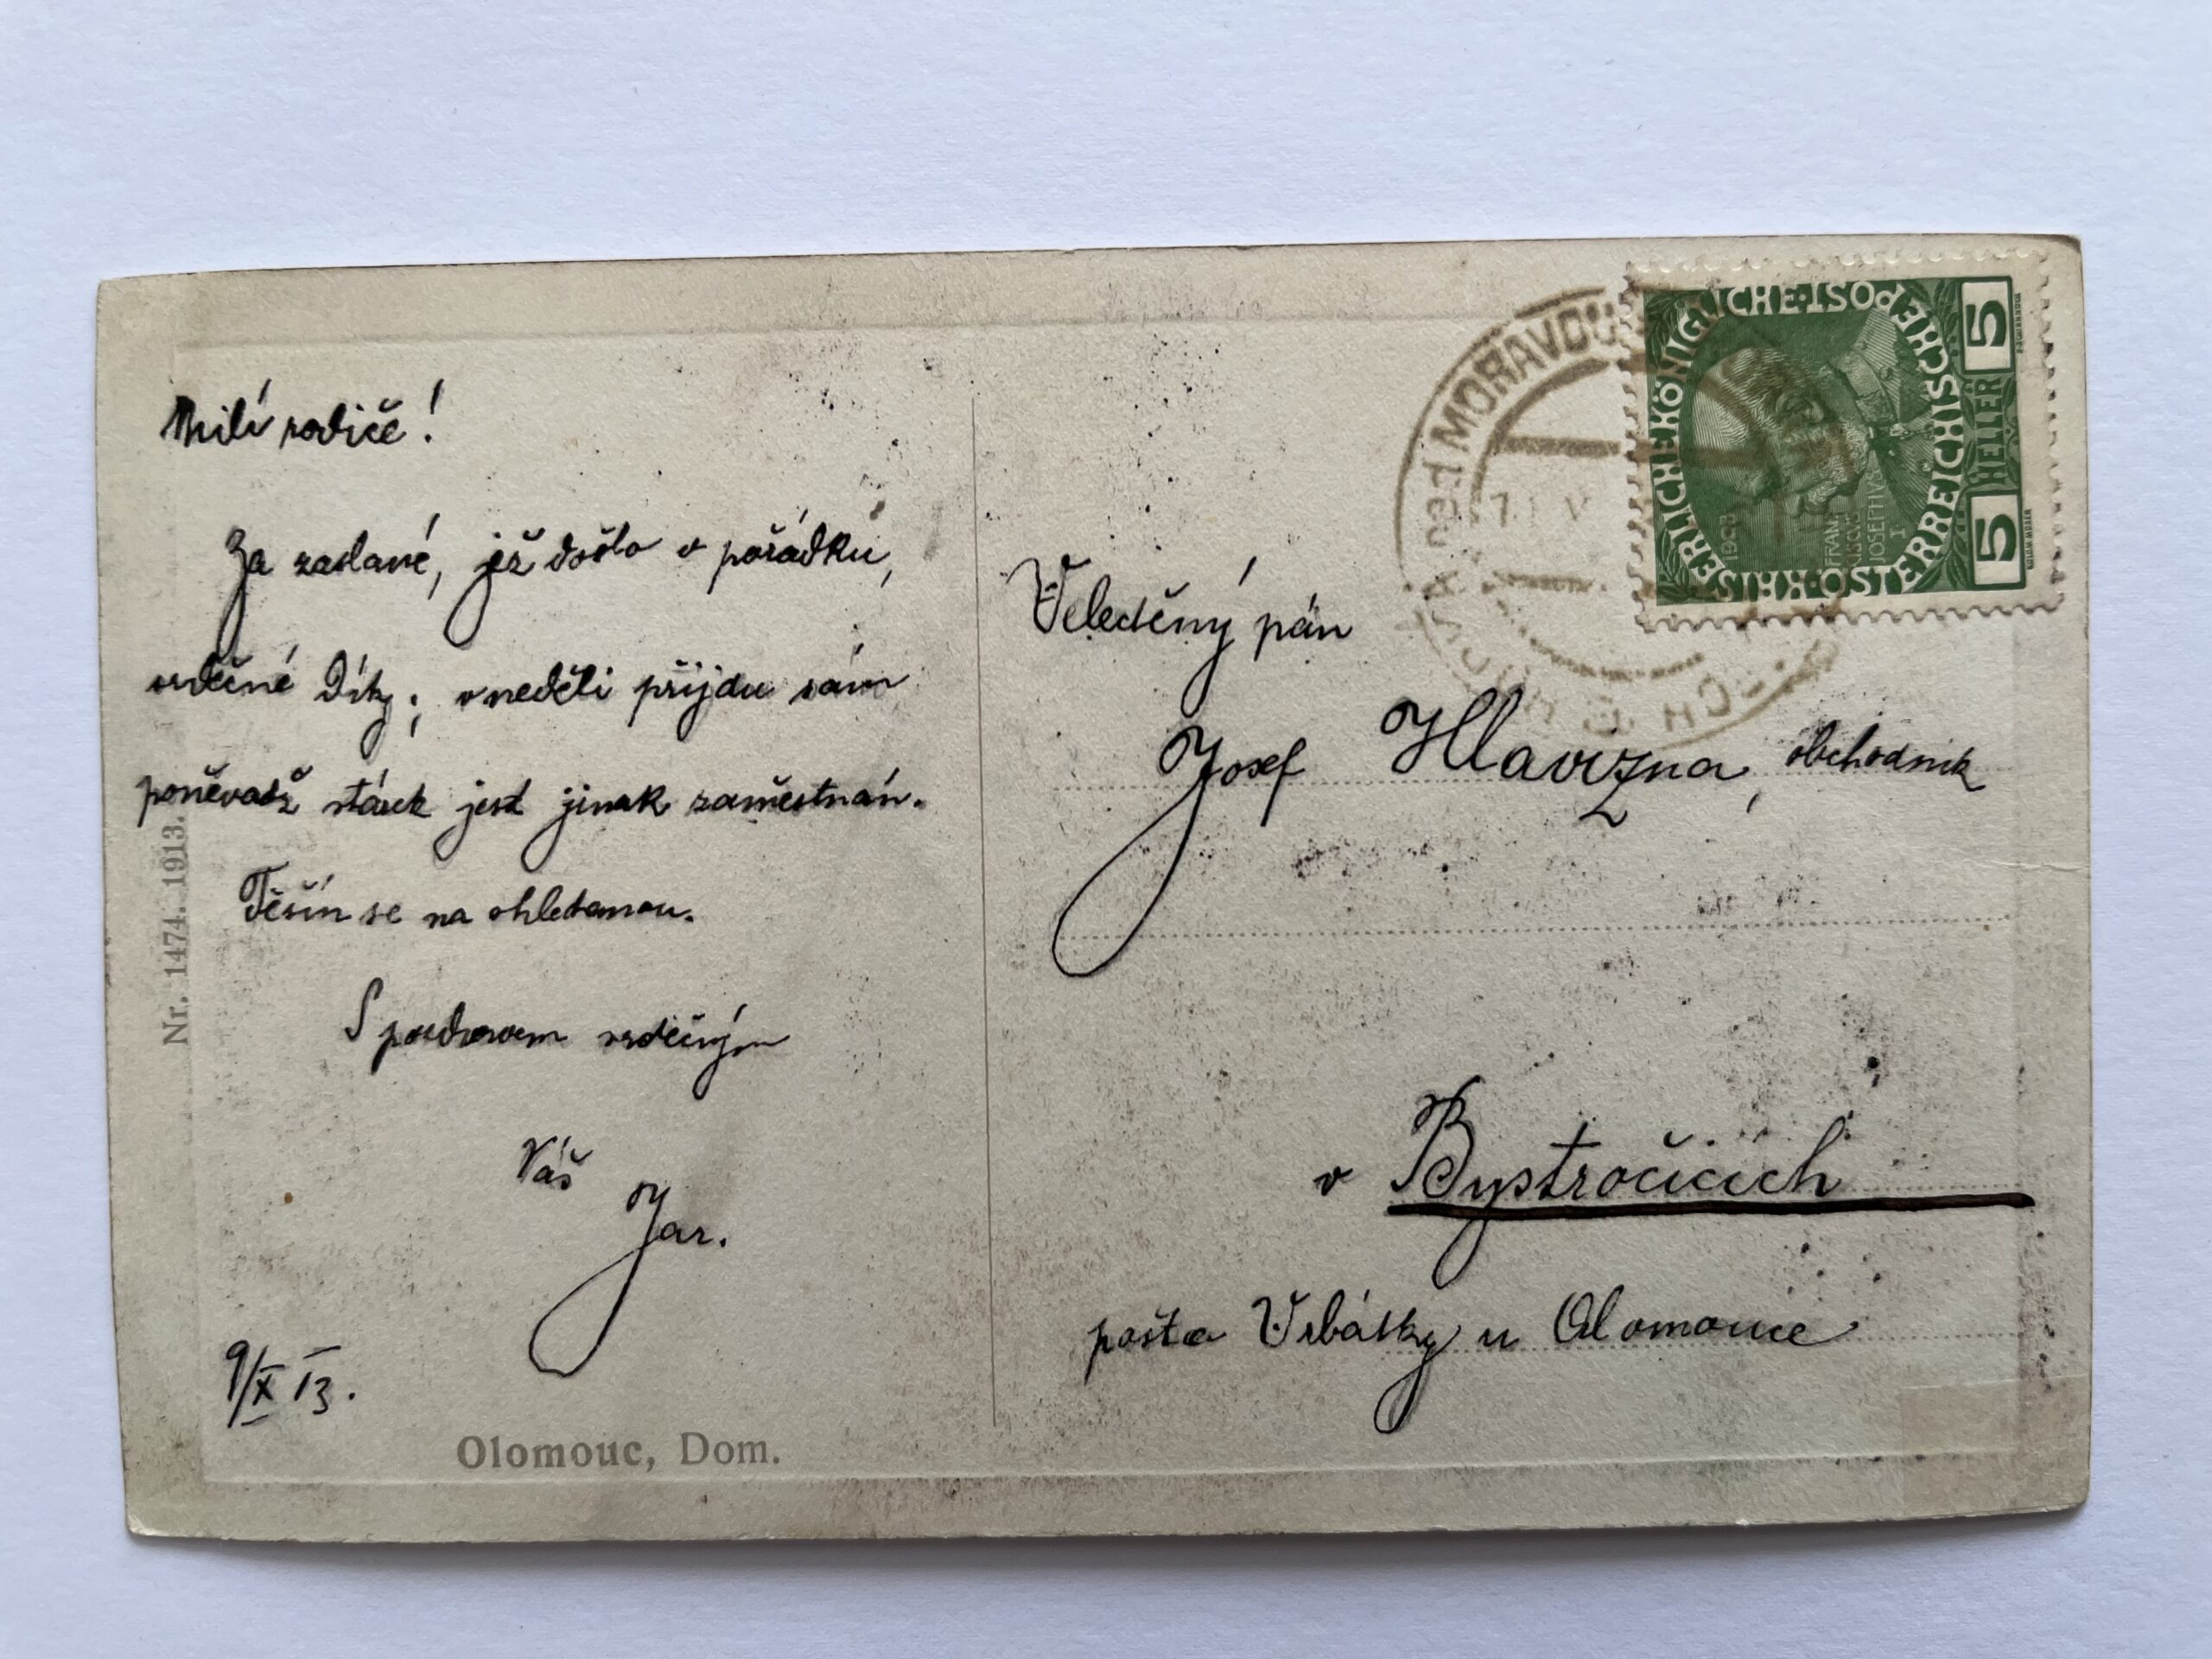 Milí rodiče!
Za zaslané, jež došlo v pořádku,
srdečné díky; v neděli přijdu sám
poněvadž stárek jest jinak zaměstnán.
Těším se na shledanou.
S pozdravem srdečným
Váš
Jar.
9/X 13.
Nr. 1474. 1913.
Olomouc, Dom.
Velectěný pán
Josef Hlavizna, obchodník
v Bystročicích
pošta Vrbátky u Olomouce
nad MORAVOU
KAISERLICHEKÖNIGLICHE·ÖSTERREICHISCHE·POST
5 HELLER 5
1908
FRAN
CISCVS
IOSEPHVS
I